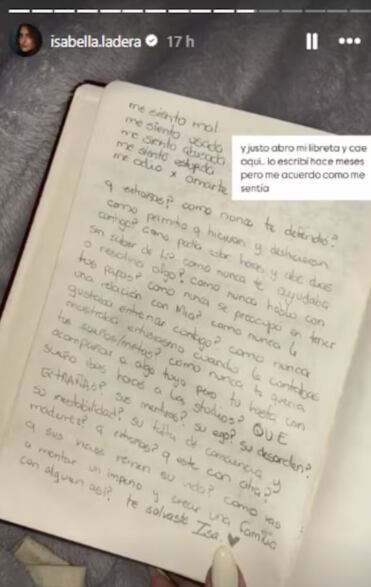 isabella.ladera 17 h
y justo abro mi libreta y cae
aqui. lo escribí hace meses
pero me acuerdo como me
sentía
me siento mal
me siento usada
me siento abusada
me siento estúpida
me odio x amarte
q extrañas? como nunca te defendió?
como permitía q hicieran y deshicieran
contigo? como podía estar horas y días
sin saber de ti? como nunca te ayudaba
a resolver algo? como nunca habló con
tus papás? como nunca se preocupó en tener
una relación con Mia? como nunca le
gustaba entrenar contigo? como nunca
mostraba entusiasmo cuando le contabas
tus sueños/metas? como nunca te quería
acompañar a algo tuyo pero tu hasta con
sueño ibas a los studios? QUE
EXTRAÑAS? sus mentiras? su ego? su desorden?
su inestabilidad? su falta de conciencia y
madurez? q extrañas? q este con otra?
q sus nenes su vida? como vas
a montar un imperio y crear una familia
con alguien así? te salvaste Isa.